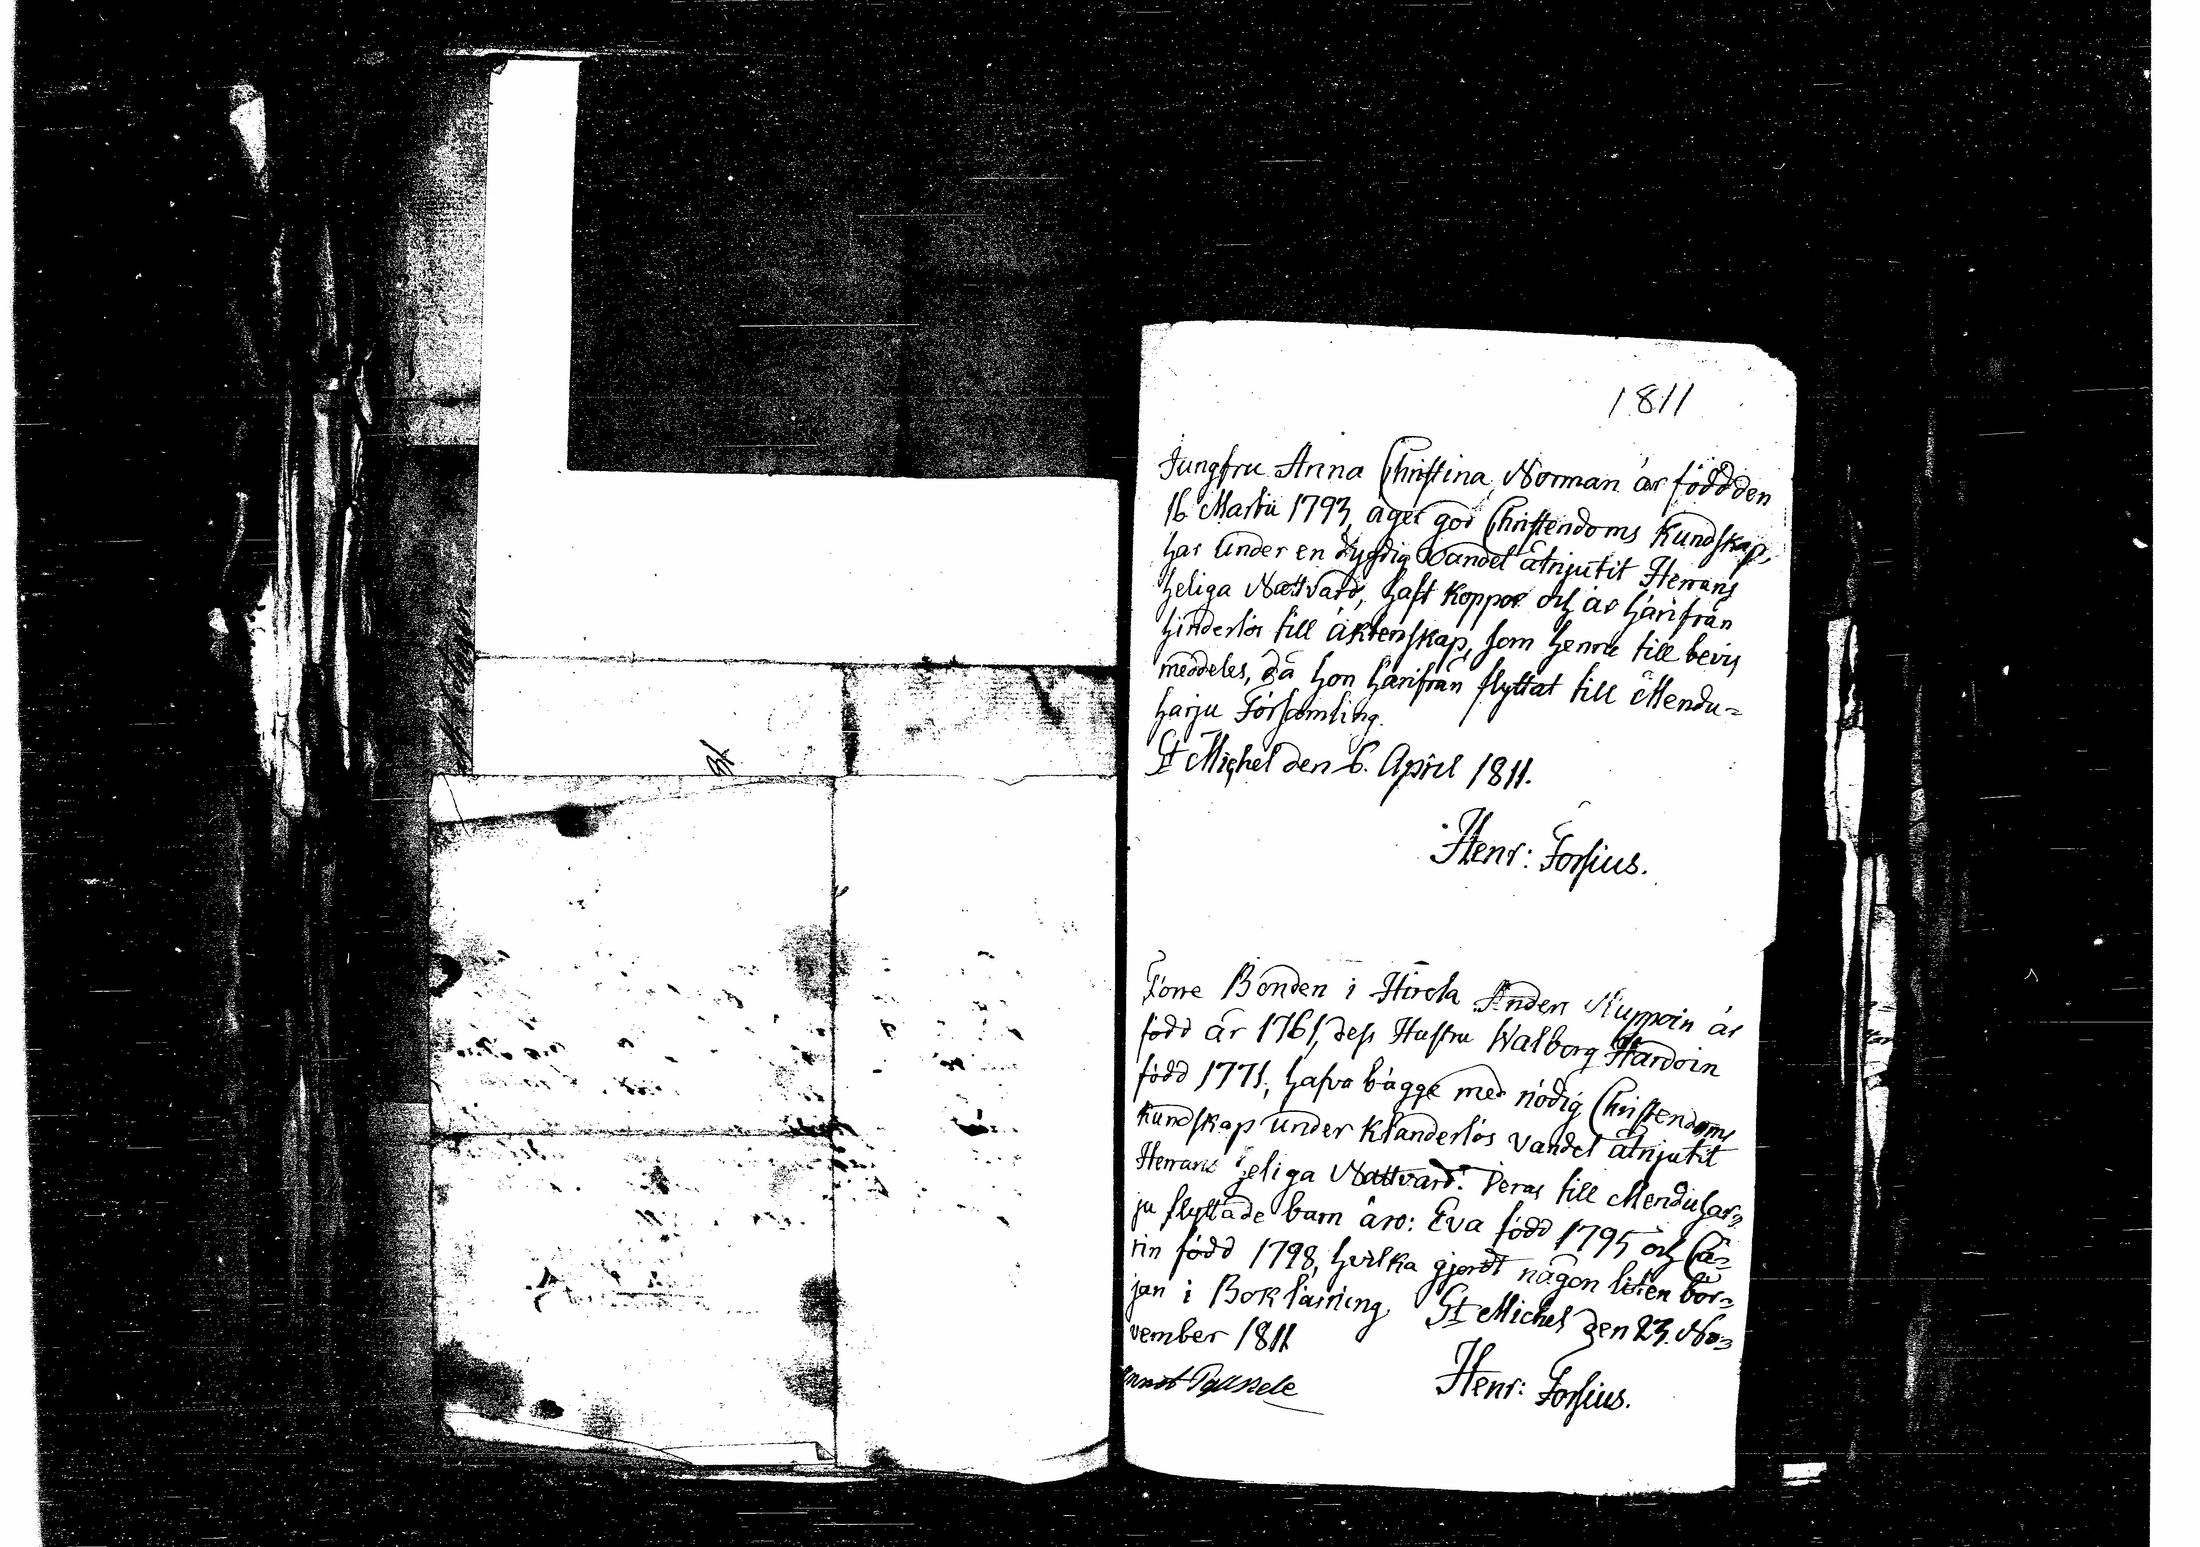 1811
Jungfru Anna Christina Norman är född den
16 Martii 1793, äger god Christendoms kundskap,
har under en dygdig vandel åtnjutit Herrans
heliga Nattvard, haft koppor och är härifrån
hinderlös till äktenskap, som henne till bevis
meddeles, då hon härifrån flyttat till Mendu=
harju Församling.
St Michel den 6. April 1811.
Henr: Forsius.
Förre Bonden i Hirola Anders Nuppoin är
född år 1761, dess Hustru Walborg Hardoin
född 1771, hafva bägge med nödig Christendoms
kundskap under klanderlös vandel åtnjutit
Herrans heliga Nattvard. Deras till Menduhar=
ju flyttade barn äro: Eva född 1795 och Ca=
rin född 1798, hvilka gjordt någon liten bör=
jan i Bokläsning. St Michel den 23. No=
vember 1811
Henr: Forsius.